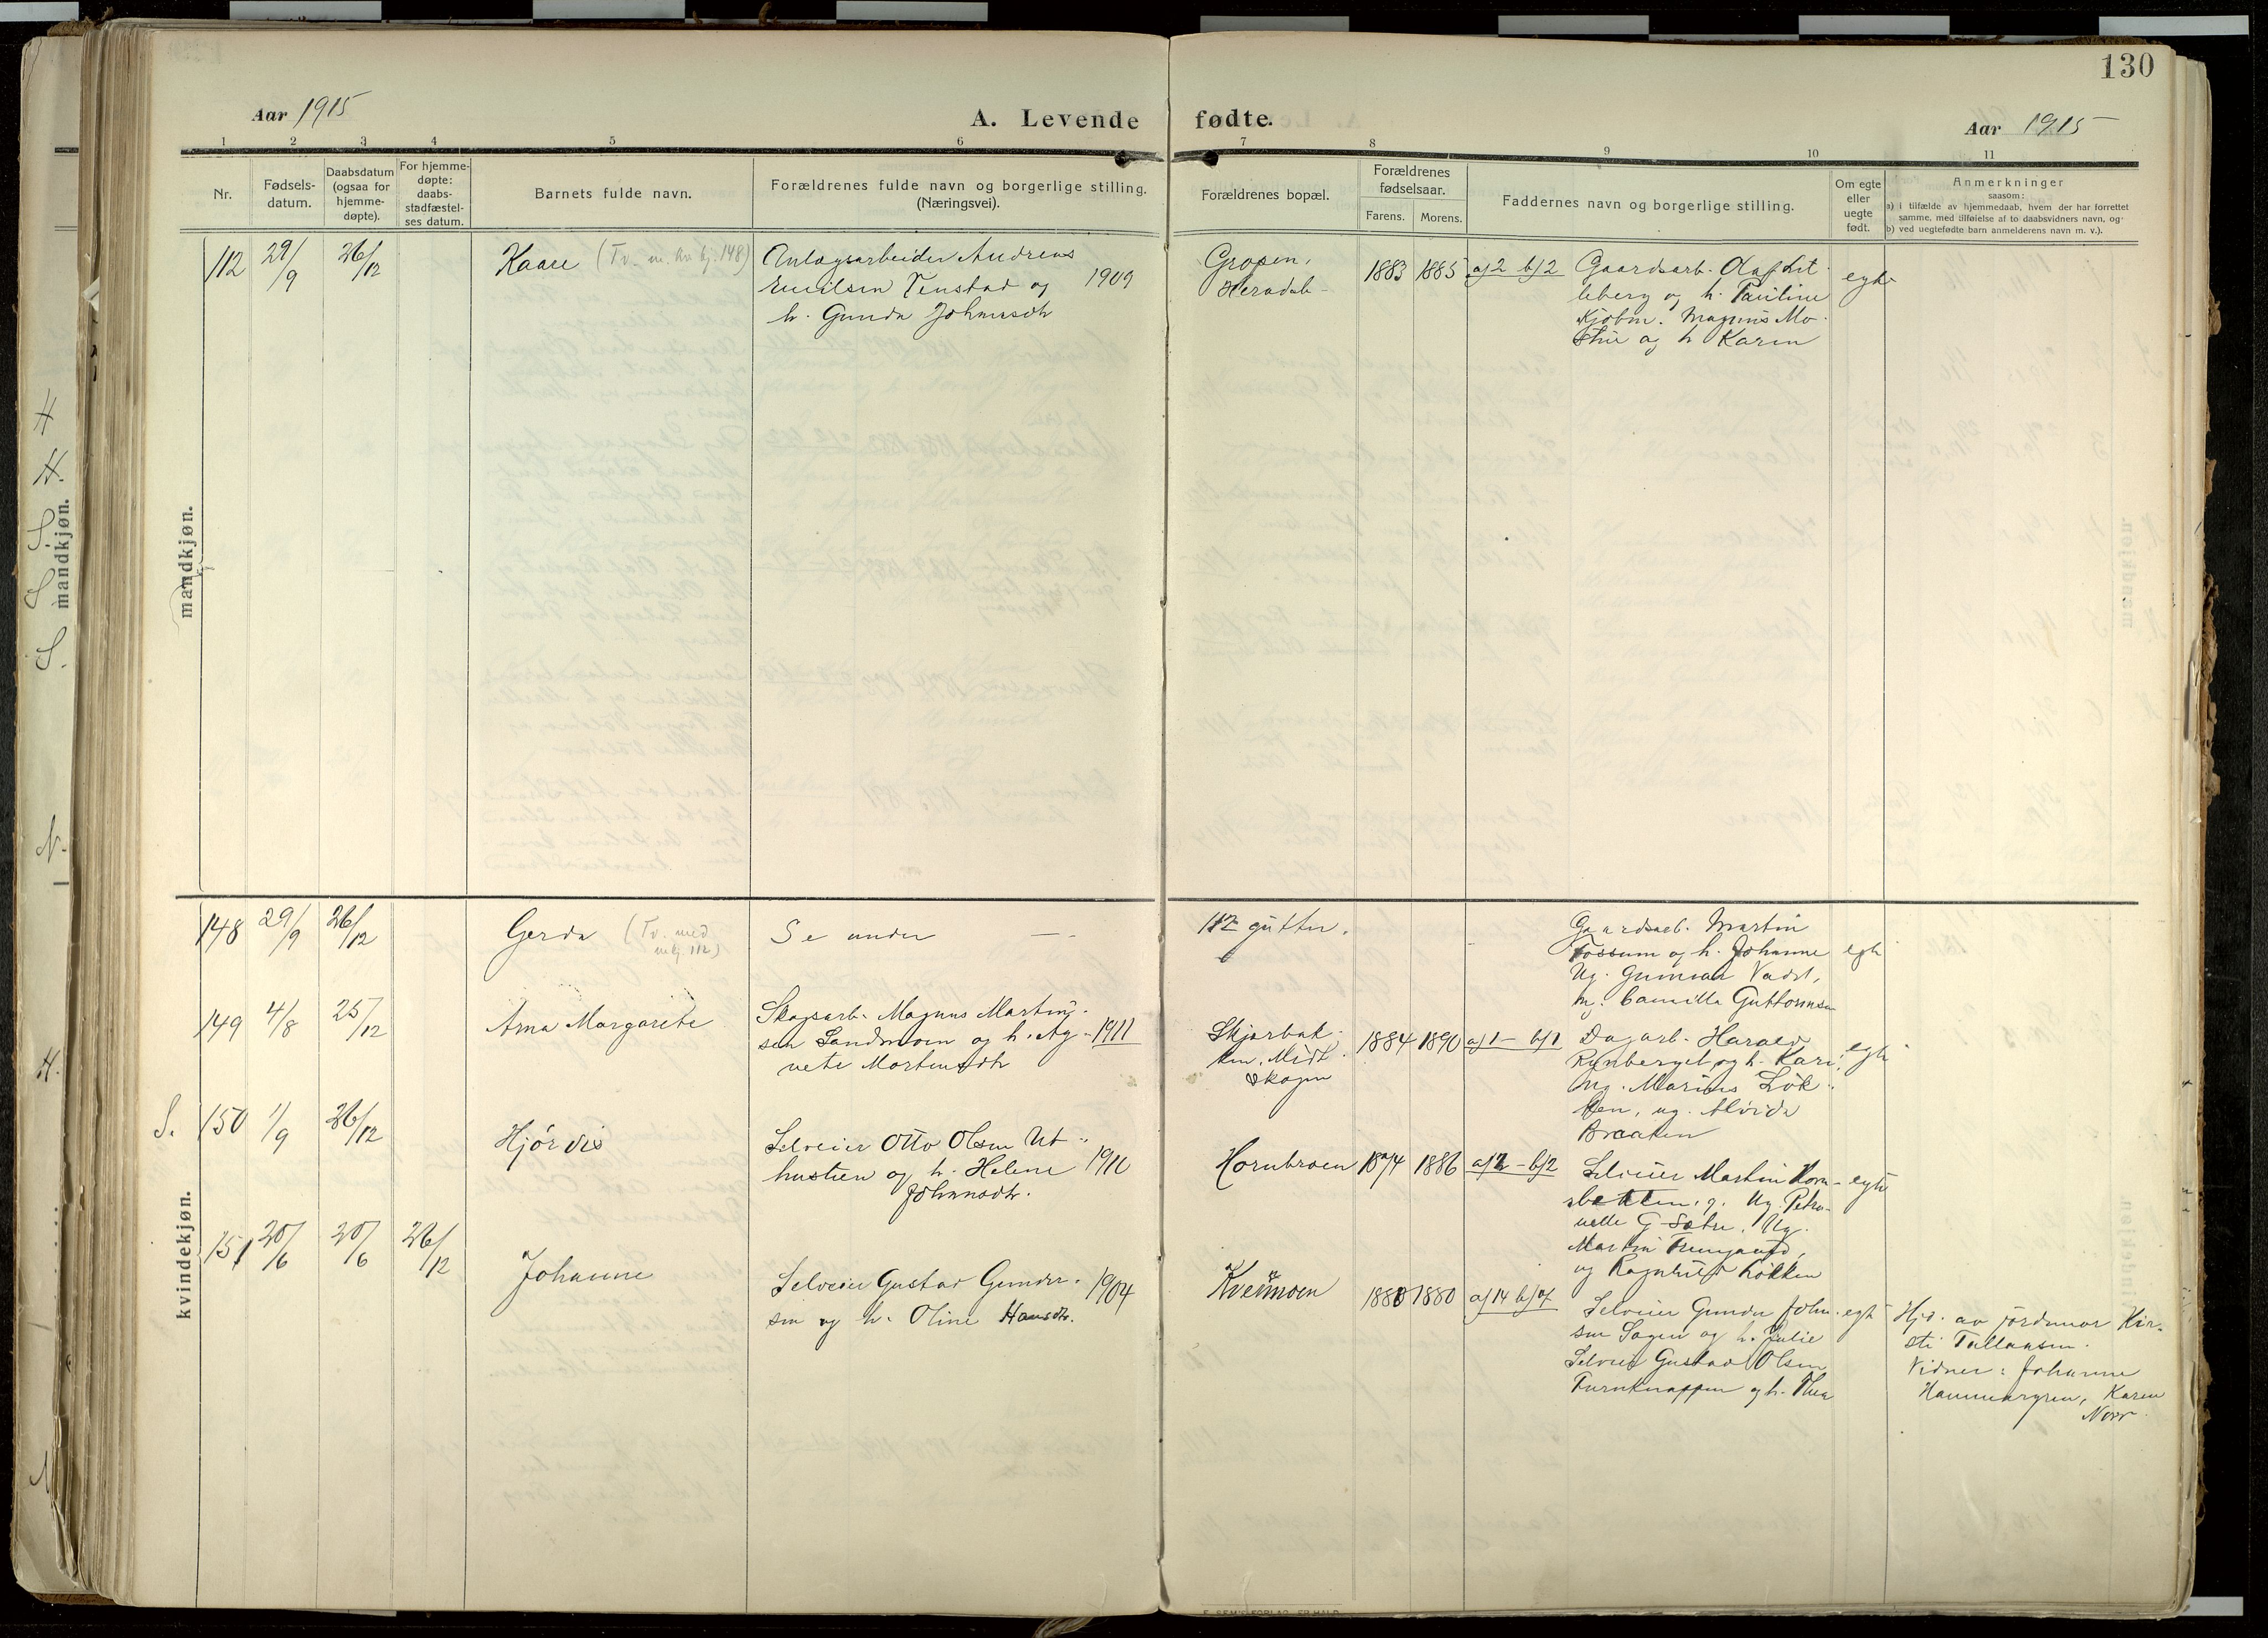 130
Aar 1915
A. Levende fødte.
Aar 1915
1 2 3 4 5 6 7 8 9 10 11
Nr.
Fødsels-
datum.
Daabsdatum
(ogsaa for
hjemme-
døpte).
For hjemme-
døpte:
daabs-
stadfæstel-
ses datum.
Barnets fulde navn.
Forældrenes fulde navn og borgerlige stilling.
(Næringsvei).
Forældrenes bopæl.
Forældrenes
fødselsaar.
Farens. Morens.
Faddernes navn og borgerlige stilling.
Om egte
eller
uegte
født.
Anmerkninger
saasom:
a) i tilfælde av hjemmedaab, hvem der har forrettet
samme, med tilføielse af to daabsvidners navn, og
b) ved uegtefødte barn anmelderens navn m. v.).
mandkjøn.
112 29/9 26/12
Kaare (Tv. m. kv kj. 148)
Anlægsarbeider Andreas
Emilsen Tenstad og 1909
h. Gunda Johansdtr
Gropen,
Heradsb-
1883 1885 a)2 b)2
Gaardsarb. Olaf
leberg og h. Pauline
Kjøbm. Magnus Mo-
og h Karen
egte
kvindekjøn.
148 29/9 26/12
Gerda (Tv. med
mkj. 112)
Se under — 112 gutter.
Gaardsarb. Martin
Fossum og h. Johanne
Ug. Gunnar
m. Camilla Guttormsen
egte
149 4/8 25/12
Arna Margarete
Skogsarb. Magnus Martin-
sen Sandmoen og h. Ag- 1911
nete Mortensdtr
Skjærbak-
ken, Midt-
skogen
1884 1890 a)1 – b)1
Dagarb. Harald
Rynberget og h. Kari,
Ug. Marius Løk-
ken, ug. Alvida
Braaten
egte
S. 150 1/9 26/12
Hjørdis
Selveier Otto Olsen Ut-
hustien og h. Helene 1910
Johansdtr.
Hornbroen
1874 1886 a)2 – b)2
Selveier Martin Horn-
Ug. Petro-
nelle G Sætre. Ug.
Martin
og Ragnhild Løkken
egte
151 20/6 20/6 26/12
Johanne
Selveier Gustav Gunder- 1904
sen og h. Oline Hansdtr.
Kvernmoen
1880 1880 a)14 b)of
Selveier Gunder John-
sen Sagen og h. Julie
Selveier Gustav Olsen
Turnknappen og h. Thea
egte
Hjd. av jordmor Kir-
sti Tallaksen.
Vidner: Johanne
Hammergren, Karen
Norr.